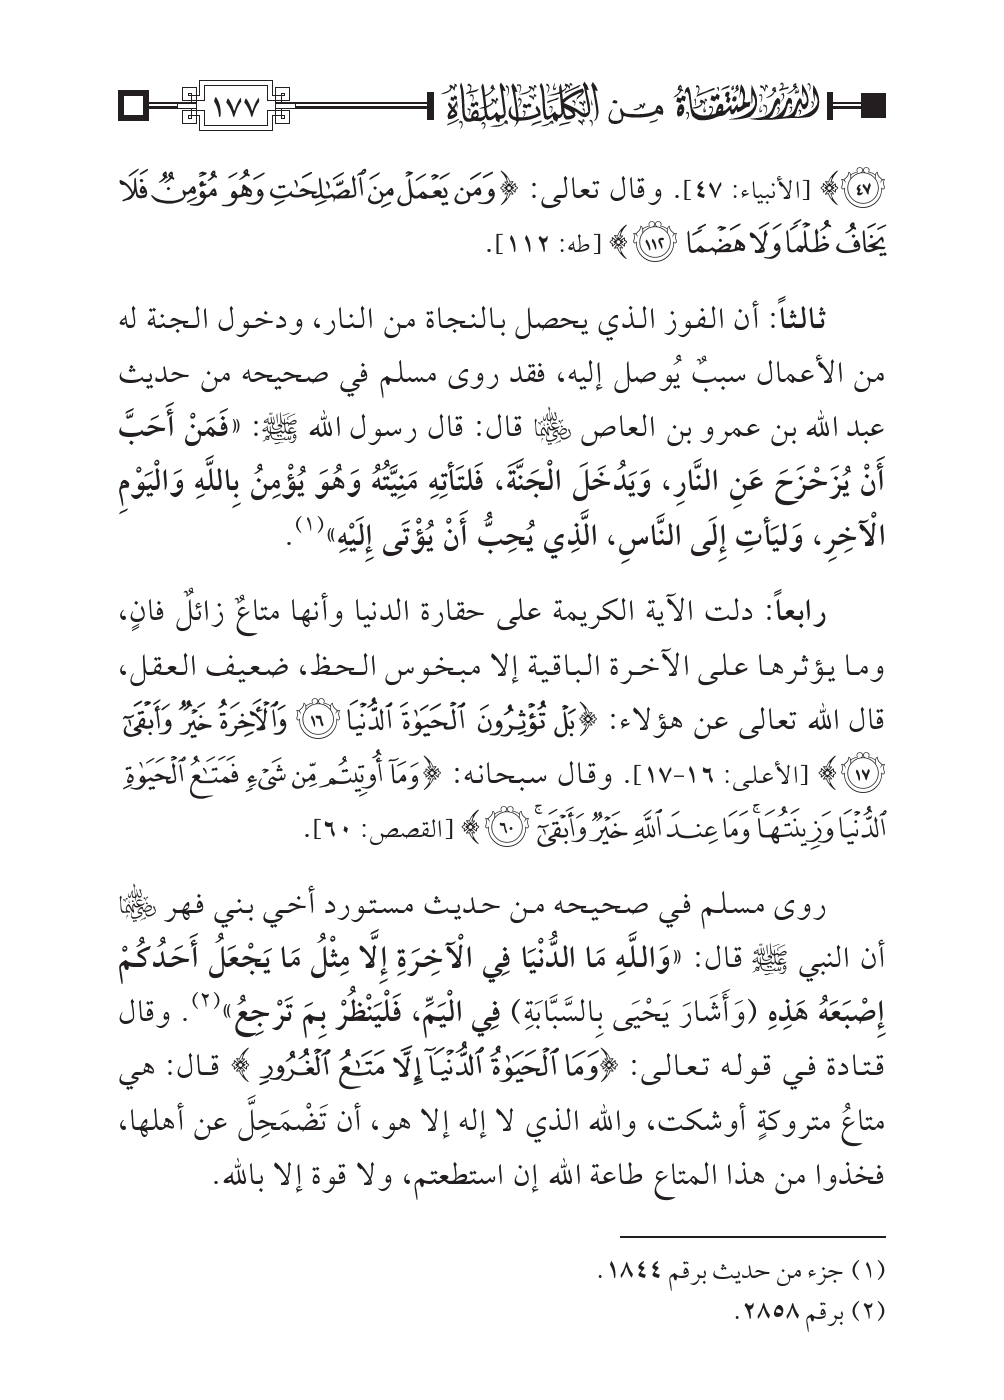 الدرر المنتقاة من الكلمات الملقاة ١٧٧
﴿٤٧﴾ [الأنبياء: ٤٧]. وقال تعالى: ﴿وَمَن يَعْمَلْ مِنَ ٱلصَّٰلِحَٰتِ وَهُوَ مُؤْمِنٌ فَلَا
يَخَافُ ظُلْمًا وَلَا هَضْمًا ١١٢﴾ [طه: ١١٢].
ثالثاً: أن الفوز الذي يحصل بالنجاة من النار، ودخول الجنة له
من الأعمال سببٌ يُوصل إليه، فقد روى مسلم في صحيحه من حديث
عبد الله بن عمرو بن العاص رضي الله عنهما قال: قال رسول الله ﷺ: «فَمَنْ أَحَبَّ
أَنْ يُزَحْزَحَ عَنِ النَّارِ، وَيَدْخُلَ الْجَنَّةَ، فَلتَأتِهِ مَنِيَّتُهُ وَهُوَ يُؤْمِنُ بِاللَّهِ وَالْيَوْمِ
الْآخِرِ، وَليَأتِ إِلَى النَّاسِ، الَّذِي يُحِبُّ أَنْ يُؤْتَى إِلَيْهِ»(١).
رابعاً: دلت الآية الكريمة على حقارة الدنيا وأنها متاعٌ زائلٌ فانٍ،
وما يؤثرها على الآخرة الباقية إلا مبخوس الحظ، ضعيف العقل،
قال الله تعالى عن هؤلاء: ﴿بَلْ تُؤْثِرُونَ ٱلْحَيَوٰةَ ٱلدُّنْيَا ١٦ وَٱلْأَخِرَةُ خَيْرٌ وَأَبْقَىٰٓ
١٧﴾ [الأعلى: ١٦-١٧]. وقال سبحانه: ﴿وَمَآ أُوتِيتُم مِّن شَىْءٍ فَمَتَٰعُ ٱلْحَيَوٰةِ
ٱلدُّنْيَا وَزِينَتُهَا ۚ وَمَا عِندَ ٱللَّهِ خَيْرٌ وَأَبْقَىٰٓ ۚ ٦٠﴾ [القصص: ٦٠].
روى مسلم في صحيحه من حديث مستورد أخي بني فهر رضي الله عنهما
أن النبي ﷺ قال: «وَاللَّهِ مَا الدُّنْيَا فِي الْآخِرَةِ إِلَّا مِثْلُ مَا يَجْعَلُ أَحَدُكُمْ
إِصْبَعَهُ هَذِهِ (وَأَشَارَ يَحْيَى بِالسَّبَّابَةِ) فِي الْيَمِّ، فَلْيَنْظُرْ بِمَ تَرْجِعُ»(٢). وقال
قتادة في قوله تعالى: ﴿وَمَا ٱلْحَيَوٰةُ ٱلدُّنْيَآ إِلَّا مَتَٰعُ ٱلْغُرُورِ﴾ قال: هي
متاعُ متروكةٍ أوشكت، والله الذي لا إله إلا هو، أن تَضْمَحِلَّ عن أهلها،
فخذوا من هذا المتاع طاعة الله إن استطعتم، ولا قوة إلا بالله.
(١) جزء من حديث برقم ١٨٤٤.
(٢) برقم ٢٨٥٨.